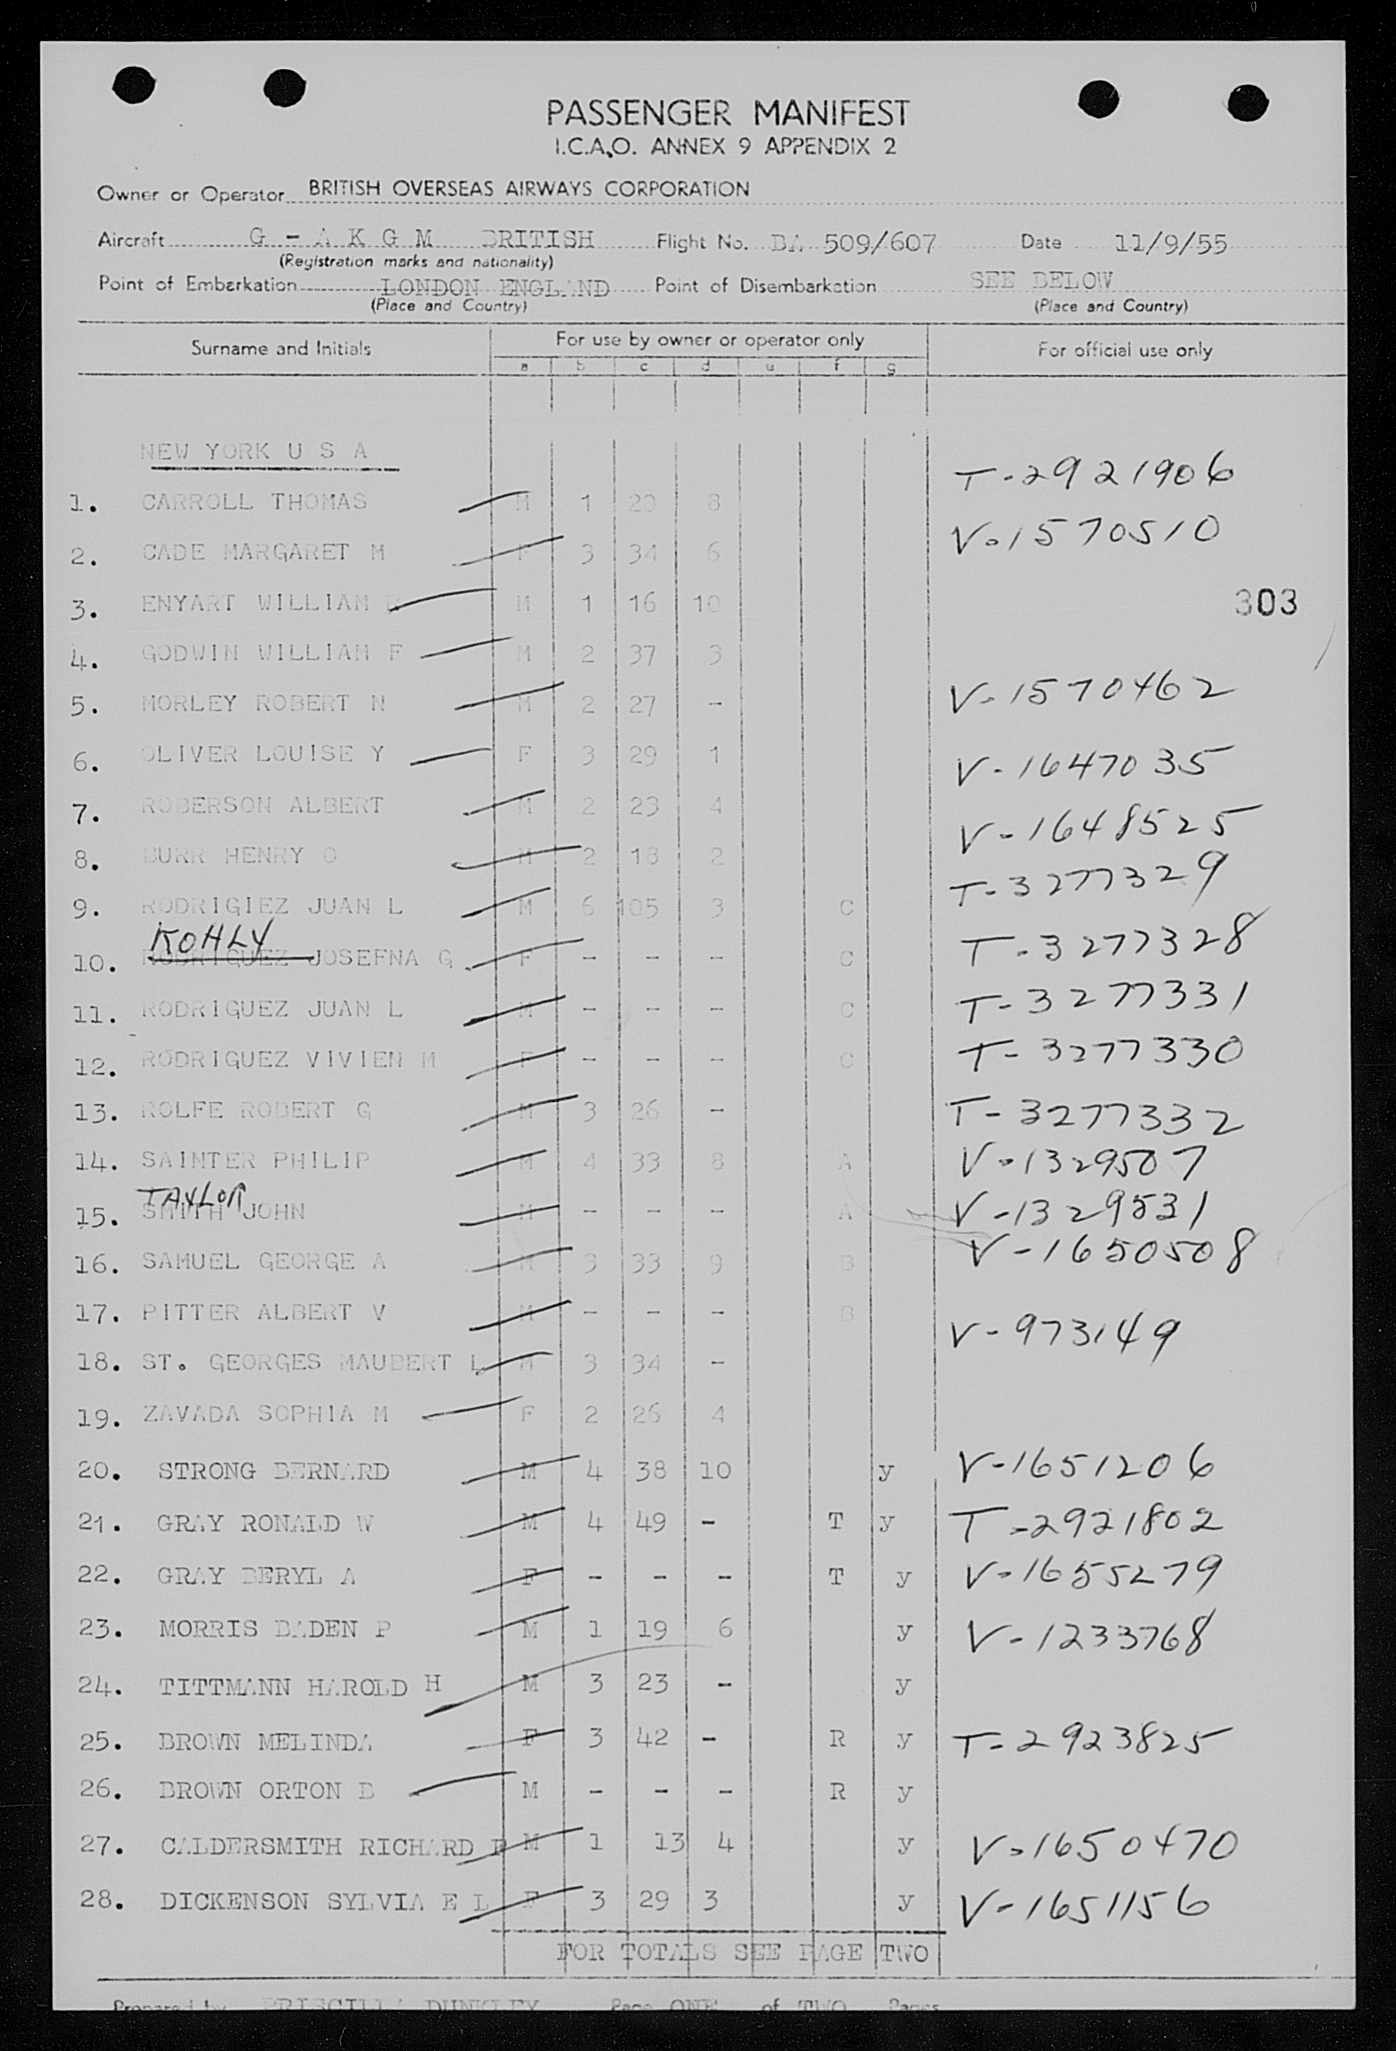 PASSENGER MANIFEST
I.C.A.O. ANNEX 9 APPENDIX 2
Owner or Operator BRITISH OVERSEAS AIRWAYS CORPORATION
Aircraft G - A K G M BRITISH Flight No. BA 509/607 Date 11/9/55
(Registration marks and nationality)
Point of Embarkation LONDON ENGLAND Point of Disembarkation SEE BELOW
(Place and Country) (Place and Country)
Surname and Initials For use by owner or operator only For official use only
a b c d e f g
NEW YORK U S A
T-2921906
1. CARROLL THOMAS M 1 20 8
V-1570510
2. CADE MARGARET M F 3 34 6
3. ENYART WILLIAM M 1 16 10 303
4. GODWIN WILLIAM F M 2 37 3
5. MORLEY ROBERT N M 2 27 - V-1570462
6. OLIVER LOUISE Y F 3 29 1 V-1647035
7. ROBERSON ALBERT M 2 23 4 V-1648525
8. BURR HENRY O M 2 18 2 T-3277329
9. RODRIGIEZ JUAN L M 6 105 3 C
KOHLY
10. RODRIGUEZ JOSEFNA G F - - - C T-3277328
11. RODRIGUEZ JUAN L M - - - C T-3277331
12. RODRIGUEZ VIVIEN M F - - - C T-3277330
13. ROLFE ROBERT G M 3 26 - T-3277332
14. SAINTER PHILIP M 4 33 8 A V-1329507
TAYLOR
15. SMITH JOHN M - - - A V-1329531
16. SAMUEL GEORGE A M 3 33 9 B V-1650508
17. PITTER ALBERT V M - - - B V-973149
18. ST. GEORGES MAUBERT L M 3 34 -
19. ZAVADA SOPHIA M F 2 26 4
20. STRONG BERNARD M 4 38 10 y V-1651206
21. GRAY RONALD W M 4 49 - T y T-2921802
22. GRAY BERYL A F - - - T y V-1655279
23. MORRIS BADEN P M 1 19 6 y V-1233768
24. TITTMANN HAROLD H M 3 23 - y
25. BROWN MELINDA F 3 42 - R y T-2923825
26. BROWN ORTON B M - - - R y
27. CALDERSMITH RICHARD M 1 13 4 y V-1650470
28. DICKENSON SYLVIA E L F 3 29 3 y V-1651156
FOR TOTALS SEE PAGE TWO
Prepared by PRISCILLA DUNKLEY Page ONE of TWO Pages